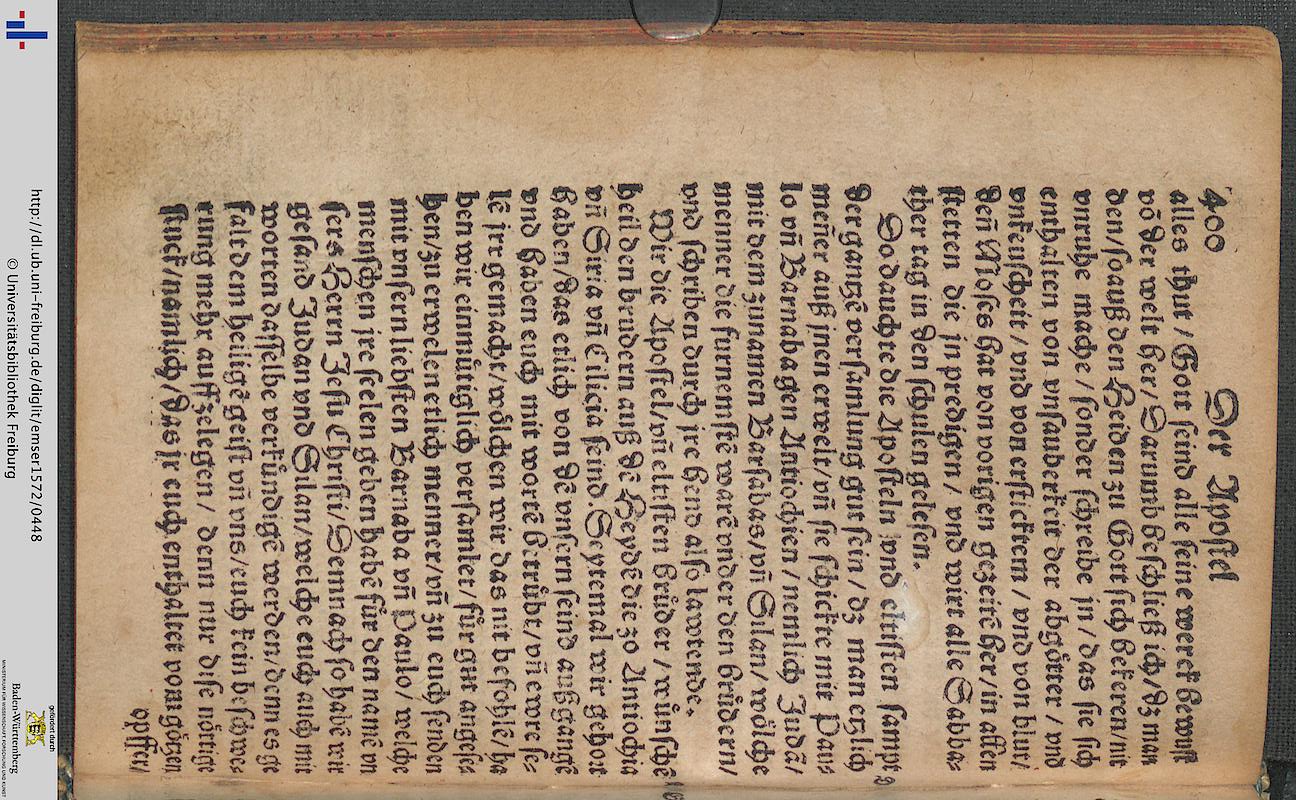 400
Der Apostel
alles thut / Gott seind alle seine werck bewust
vō der welt her / Darumb beschließ ich / dz man
den / so auß den Heiden zu Gott sich bekeren / nit
vnruhe mache / sonder schreibe jn / das se sich
enthalten von vnsauberkeit der abgötter / vnd
vnkeuscheit / vnd von ersticktem / vnd von blut /
deñ Moses hat von vorigen gezeitē her / in allen
stetten die jn predigen / vnd wirt alle Sabba-
ther tag in den schulen gelesen.
Do dauchte die Aposteln vnd eltisten sampt
der gantzē versamlung gut sein / dz man etzlich
meñer auß jnen erwelt / vñ se schickte mit Pau-
lo vñ Barnaba gen Antiochien / nemlich Judā /
mit dem zunamen Barsabas / vñ Silan / wölche
menner die furnemstē warē vnder den brüdern /
vnd schriben durch jre hend also lawtende.
Wir die Apostel / vñ eltisten brüder / wünsche
heil den brudern auß dē Heydē die zo Antiochia
vñ Siria vñ Cilicia seind Seytemal wir gehort
haben / das etlich von dē vnsern seind außgangē
vnd haben euch mit wortē betrübt / vñ ewre se-
lē jrr gemacht / wölchen wir das nit befohlē / ha
ben wir einmütiglich versamlet / für gut anges
hen / zu erwelen etlich menner / vñ zu euch senden
mit vnsern liebsten Barnaba vñ Paulo / welche
menschen jre selen geben habē für den namē vn
sers Herrn Jesu Christi / Demnach so habē wir
gesand Judan vnd Silan / welche euch auch mit
worten dasselbe verkündigē werden / denn es ge
falt dem heiligē geist vñ vns / euch kein beschwe
rung mehr auff zelegen / denn nur dise nötige
stuck / nämlich / das jr euch enthaltet von götzen
opffer /
http://dl.ub.uni-freiburg.de/diglit/emser1572/0448
© Universitätsbibliothek Freiburg
gefördert durch
Baden-Württemberg
MINISTERIUM FÜR WISSENSCHAFT, FORSCHUNG UND KUNST